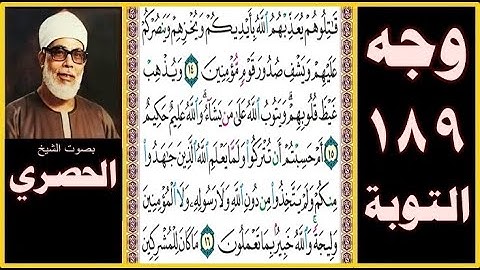 وجه
١٨٩
التوبة
قَٰتِلُوهُمْ يُعَذِّبْهُمُ ٱللَّهُ بِأَيْدِيكُمْ وَيُخْزِهِمْ وَيَنصُرْكُمْ
عَلَيْهِمْ وَيَشْفِ صُدُورَ قَوْمٍ مُّؤْمِنِينَ ١٤ وَيُذْهِبْ
غَيْظَ قُلُوبِهِمْ ۗ وَيَتُوبُ ٱللَّهُ عَلَىٰ مَن يَشَآءُ ۗ وَٱللَّهُ عَلِيمٌ حَكِيمٌ
١٥ أَمْ حَسِبْتُمْ أَن تُتْرَكُوا۟ وَلَمَّا يَعْلَمِ ٱللَّهُ ٱلَّذِينَ جَٰهَدُوا۟
مِنكُمْ وَلَمْ يَتَّخِذُوا۟ مِن دُونِ ٱللَّهِ وَلَا رَسُولِهِۦ وَلَا ٱلْمُؤْمِنِينَ
وَلِيجَةً ۚ وَٱللَّهُ خَبِيرٌۢ بِمَا تَعْمَلُونَ ١٦ مَا كَانَ لِلْمُشْرِكِينَ
بصوت الشيخ
الحصري